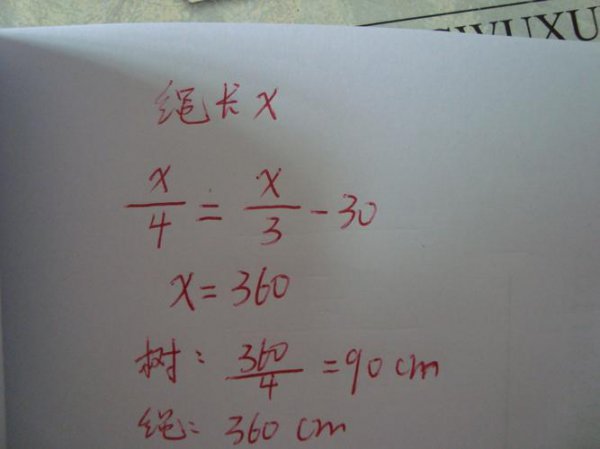 绳长x
x/4 = x/3 - 30
x = 360
树: 360/4 = 90 cm
绳: 360 cm